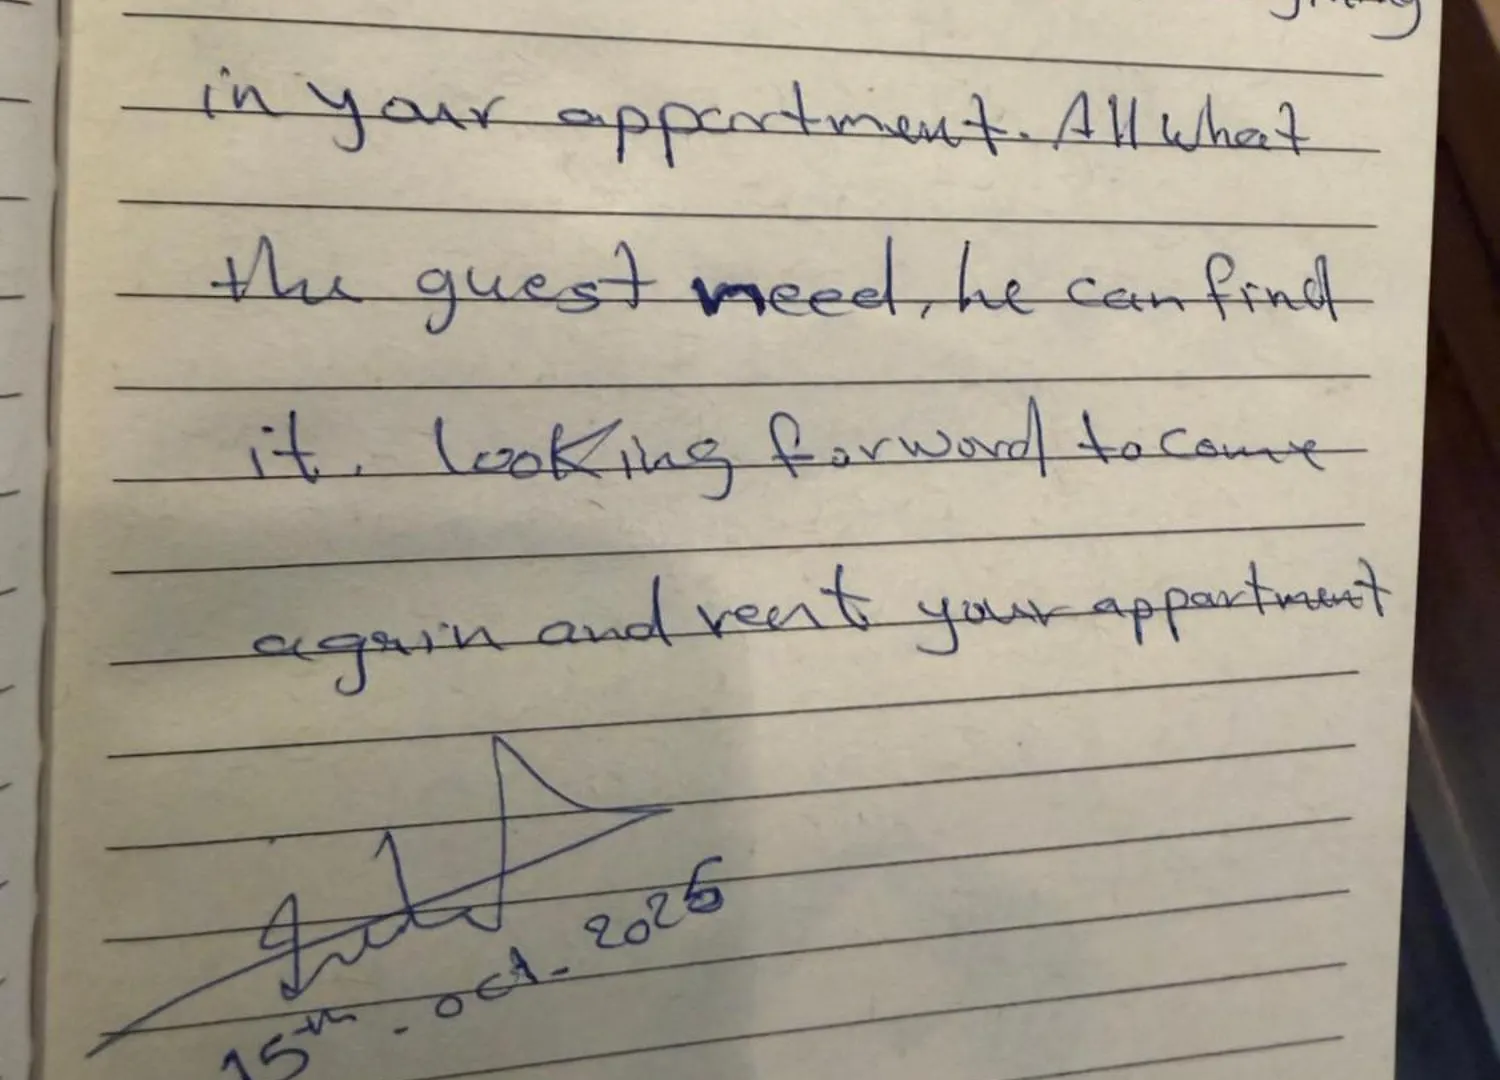 in your appartment. All what
the guest need, he can find
it. looking forword to come
again and reent your appartment
15th - oct - 2025